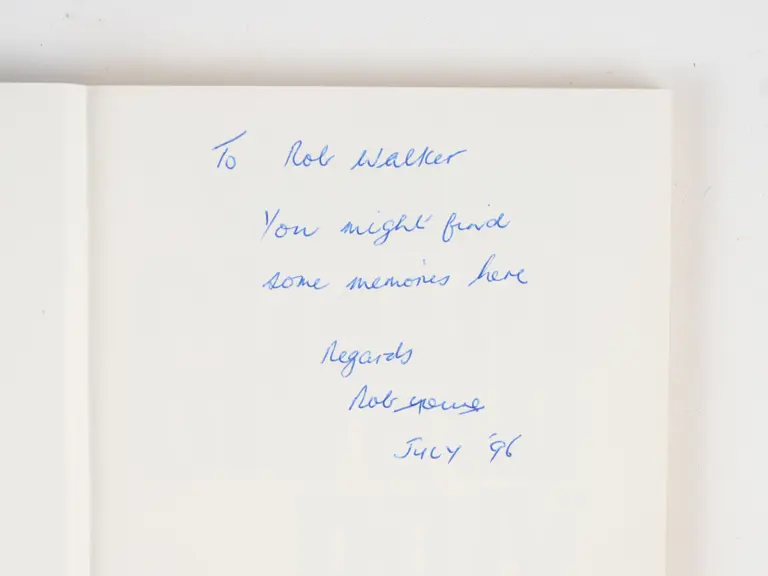 To Rob Walker
You might find
some memories here
Regards
Rob
July '96